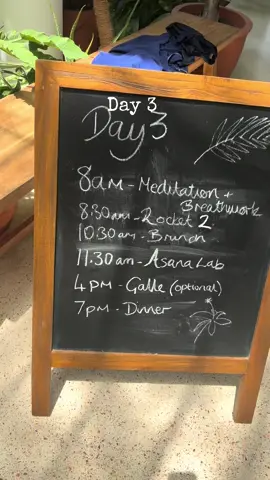 Day 3
Day 3
8am - Meditation +
Breathwork
8.30am - Rocket 2
10.30am - Brunch
11.30am - Asana Lab
4pm - Galle (optional)
7pm - Dinner